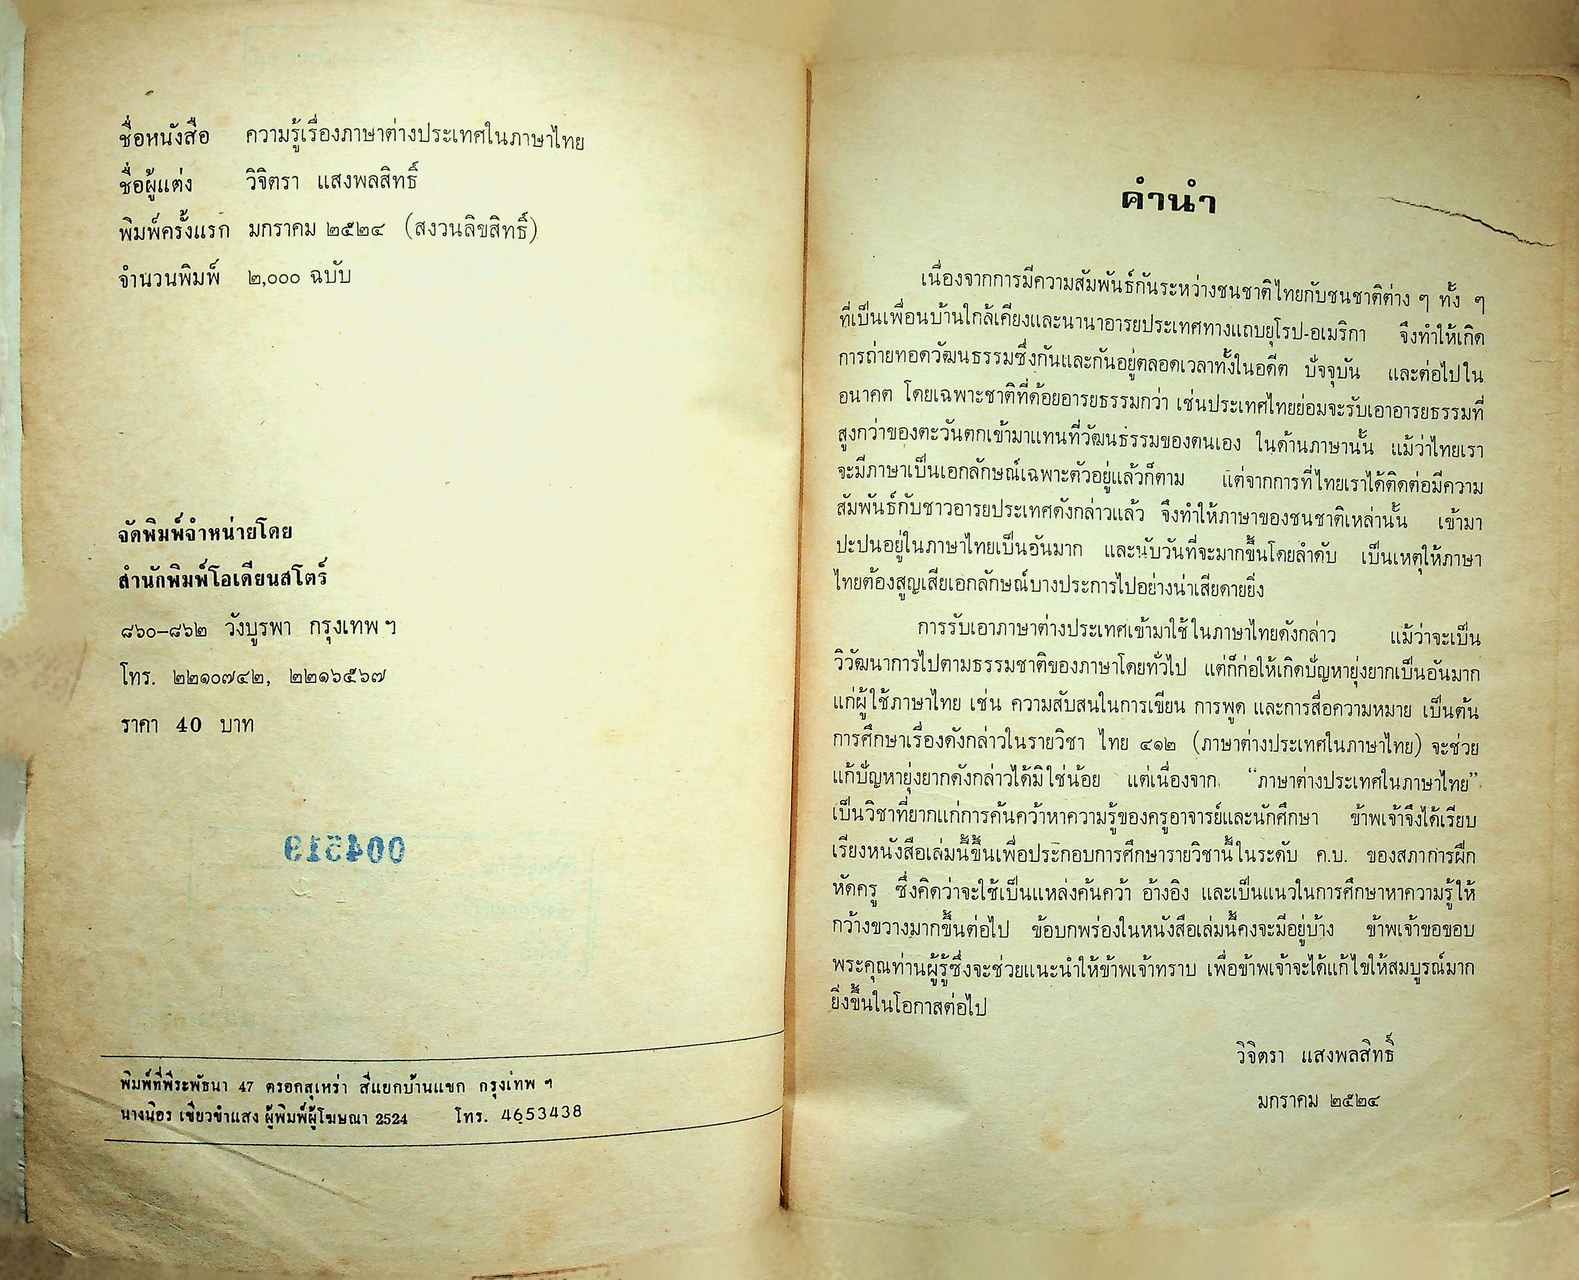 ชื่อหนังสือ ความรู้เรื่องภาษาต่างประเทศในภาษาไทย
ชื่อผู้แต่ง วิจิตรา แสงพลสิทธิ์
พิมพ์ครั้งแรก มกราคม ๒๕๒๔ (สงวนลิขสิทธิ์)
จำนวนพิมพ์ ๒,๐๐๐ ฉบับ
จัดพิมพ์จำหน่ายโดย
สำนักพิมพ์โอเดียนสโตร์
๘๖๐–๘๖๒ วังบูรพา กรุงเทพ ฯ
โทร. ๒๒๑๐๗๔๒, ๒๒๑๖๕๖๗
ราคา 40 บาท
พิมพ์ที่พีระพัธนา 47 ตรอกสุเหร่า สี่แยกบ้านแขก กรุงเทพ ฯ
นางนิอร เขียวขำแสง ผู้พิมพ์ผู้โฆษณา 2524 โทร. 4653438
คำนำ
เนื่องจากการมีความสัมพันธ์กันระหว่างชนชาติไทยกับชนชาติต่าง ๆ ทั้ง ๆ
ที่เป็นเพื่อนบ้านใกล้เคียงและนานาอารยประเทศทางแถบยุโรป-อเมริกา จึงทำให้เกิด
การถ่ายทอดวัฒนธรรมซึ่งกันและกันอยู่ตลอดเวลาทั้งในอดีต ปัจจุบัน และต่อไปใน
อนาคต โดยเฉพาะชาติที่ด้อยอารยธรรมกว่า เช่นประเทศไทยย่อมจะรับเอาอารยธรรมที่
สูงกว่าของตะวันตกเข้ามาแทนที่วัฒนธรรมของตนเอง ในด้านภาษานั้น แม้ว่าไทยเรา
จะมีภาษาเป็นเอกลักษณ์เฉพาะตัวอยู่แล้วก็ตาม แต่จากการที่ไทยเราได้ติดต่อมีความ
สัมพันธ์กับชาวอารยประเทศดังกล่าวแล้ว จึงทำให้ภาษาของชนชาติเหล่านั้น เข้ามา
ปะปนอยู่ในภาษาไทยเป็นอันมาก และนับวันที่จะมากขึ้นโดยลำดับ เป็นเหตุให้ภาษา
ไทยต้องสูญเสียเอกลักษณ์บางประการไปอย่างน่าเสียดายยิ่ง
การรับเอาภาษาต่างประเทศเข้ามาใช้ในภาษาไทยดังกล่าว แม้ว่าจะเป็น
วิวัฒนาการไปตามธรรมชาติของภาษาโดยทั่วไป แต่ก็ก่อให้เกิดปัญหายุ่งยากเป็นอันมาก
แก่ผู้ใช้ภาษาไทย เช่น ความสับสนในการเขียน การพูด และการสื่อความหมาย เป็นต้น
การศึกษาเรื่องดังกล่าวในรายวิชา ไทย ๔๑๒ (ภาษาต่างประเทศในภาษาไทย) จะช่วย
แก้ปัญหายุ่งยากดังกล่าวได้มิใช่น้อย แต่เนื่องจาก “ภาษาต่างประเทศในภาษาไทย”
เป็นวิชาที่ยากแก่การค้นคว้าหาความรู้ของครูอาจารย์และนักศึกษา ข้าพเจ้าจึงได้เรียบ
เรียงหนังสือเล่มนี้ขึ้นเพื่อประกอบการศึกษารายวิชานี้ในระดับ ค.บ. ของสภาการฝึก
หัดครู ซึ่งคิดว่าจะใช้เป็นแหล่งค้นคว้า อ้างอิง และเป็นแนวในการศึกษาหาความรู้ให้
กว้างขวางมากขึ้นต่อไป ข้อบกพร่องในหนังสือเล่มนี้คงจะมีอยู่บ้าง ข้าพเจ้าขอขอบ
พระคุณท่านผู้รู้ซึ่งจะช่วยแนะนำให้ข้าพเจ้าทราบ เพื่อข้าพเจ้าจะได้แก้ไขให้สมบูรณ์มาก
ยิ่งขึ้นในโอกาสต่อไป
วิจิตรา แสงพลสิทธิ์
มกราคม ๒๕๒๔